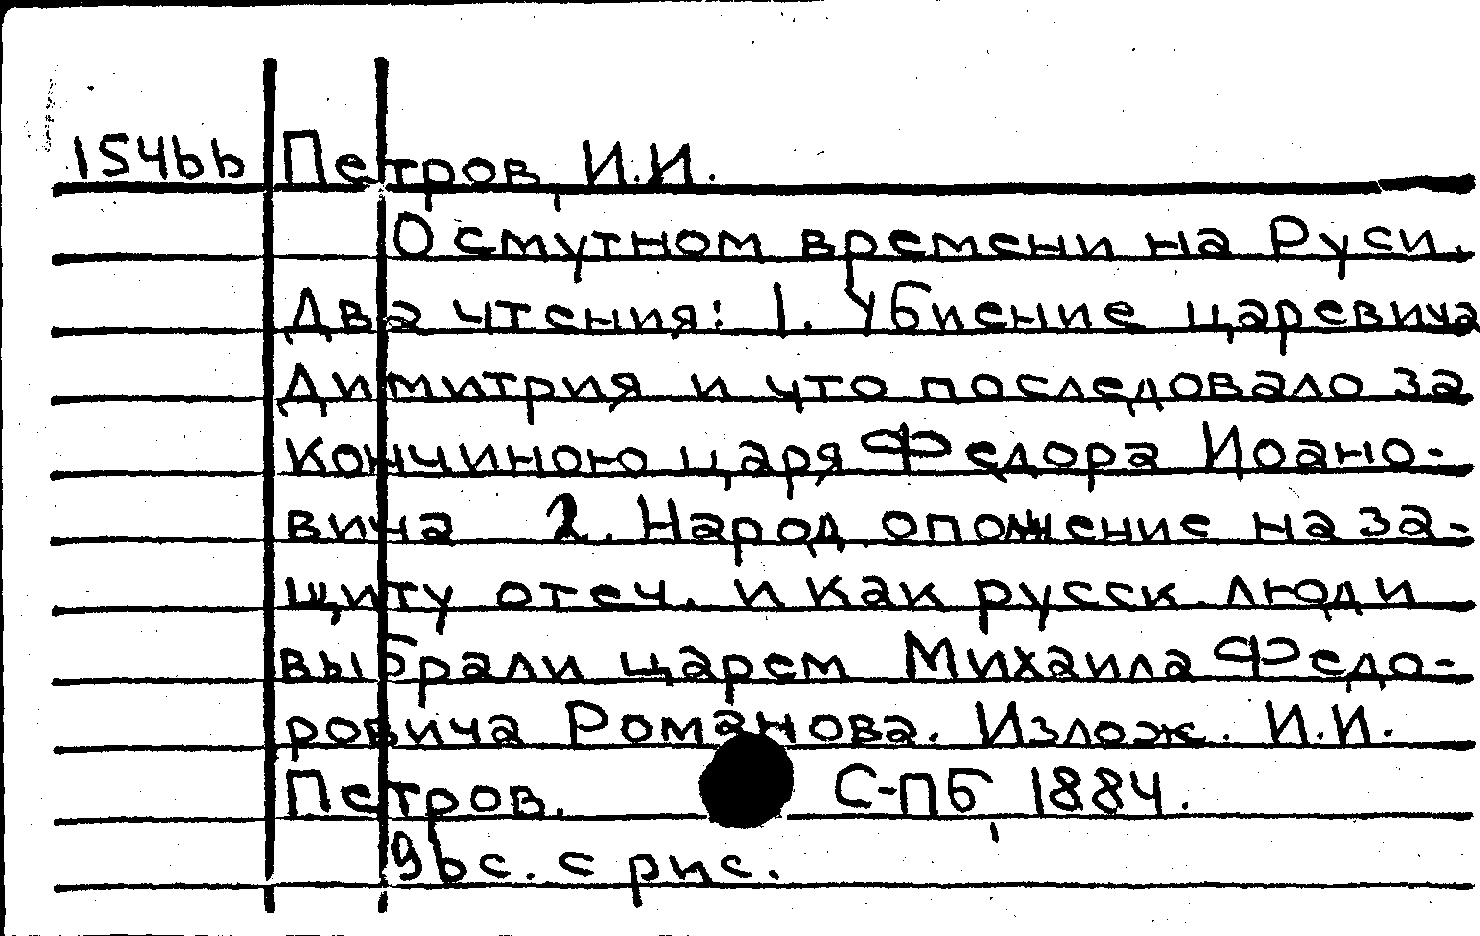 15466 Петров, И.И.
О смутном времени на Руси.
Два чтения: 1. Убиение царевича
Димитрия и что последовало за
кончиною царя Федора Иоано-
вича 2. Народ ополжение на за-
щиту отеч. и как русск. люди
выбрали царем Михаила Федо-
ровича Романова. Излож. И.И.
Петров. С-ПБ, 1884.
96 с. с рис.